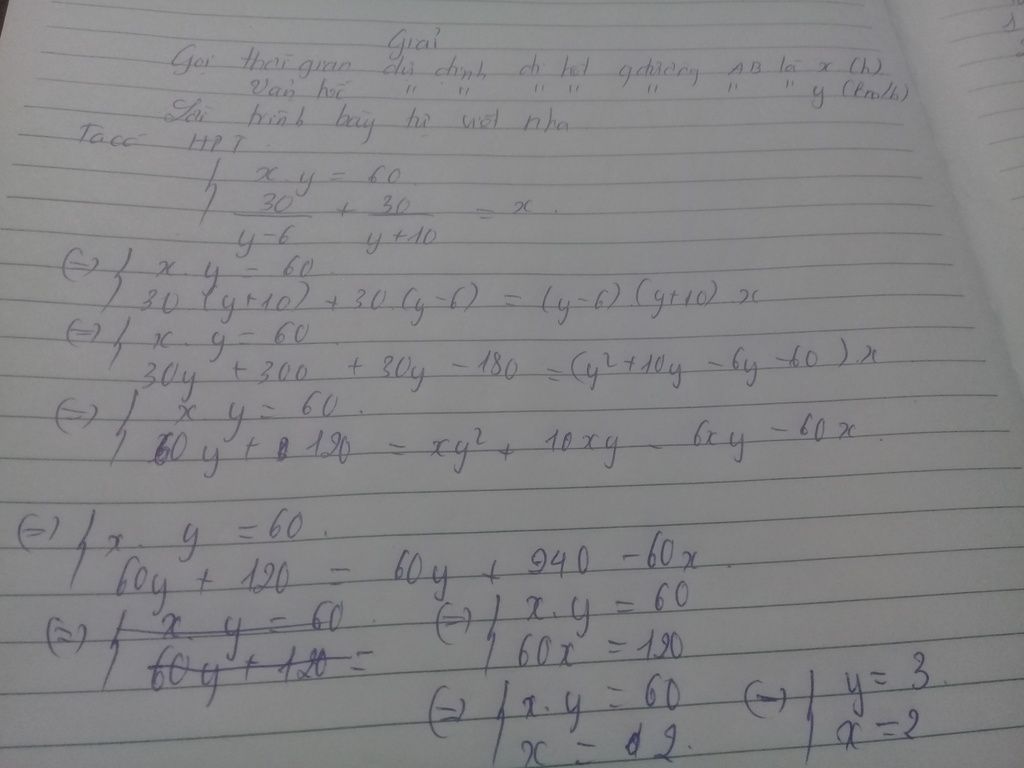 Giải
Gọi thời gian dự định đi hết quãng đường AB là x (h)
Vận tốc " " " " " " " y (km/h)
Lời trình bày tự viết nha
Ta có HPT
{ x. y = 60
{ 30/(y-6) + 30/(y+10) = x.
(=) { x. y = 60
{ 30 (y+10) + 30.(y-6) = (y-6) (y+10) x
(=) { x. y = 60
{ 30y + 300 + 30y - 180 = (y²+10y - 6y - 60) x
(=) { x y = 60.
{ 60y + 120 = xy² + 10xy - 6xy - 60x
(=) { x. y = 60.
{ 60y + 120 = 60y + 240 - 60x
(=) { x. y = 60. (=) { x. y = 60
{ 60y + 120 = { 60x = 120
(=) { x. y = 60 (=) { y = 3.
{ x = 2. { x = 2